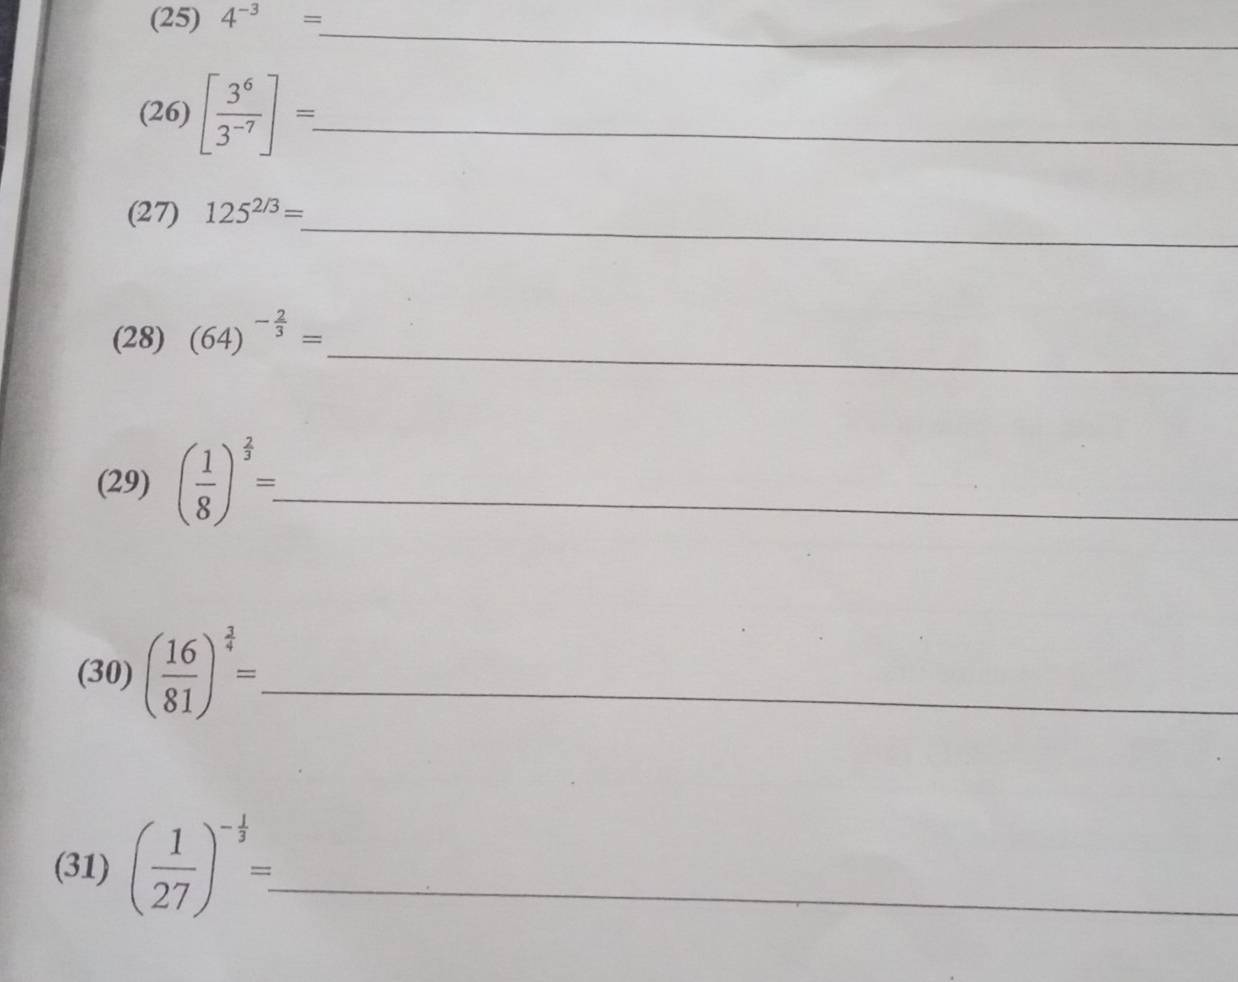 (25) 4⁻³ =
(26) [3⁶/3⁻⁷] =
(27) 125^{2/3} =
(28) (64)^{-2/3} =
(29) (1/8)^{2/3} =
(30) (16/81)^{3/4} =
(31) (1/27)^{-1/3} =